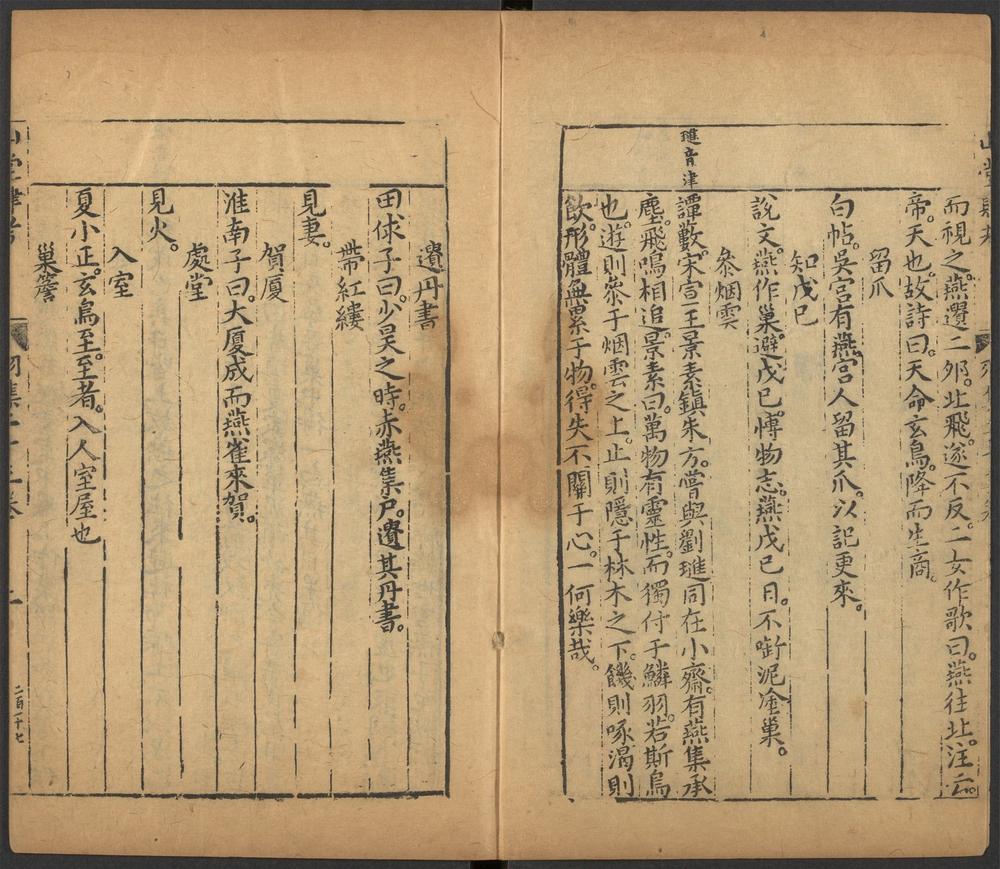 而視之。燕遺二卵。北飛。遂不反。二女作歌曰。燕往北。注云。
帝。天也。故詩曰。天命玄鳥。降而生商。
留爪
白帖。吳宮有燕。宮人留其爪。以記更來。
知戊巳
說文。燕作巢。避戊巳。愽物志。燕戊巳日。不啣泥塗巢。
叅烟雲
璡音津
譚藪。宋宣王景素鎮朱方。嘗與劉璡同在小齋。有燕集承
塵。飛鳴相追。景素曰。萬物有靈性。而獨付于鱗羽。若斯鳥
也。遊則叅于烟雲之上。止則隱于林木之下。饑則啄。渴則
飲。形體無累于物。得失不關于心。一何樂哉。
遺丹書
田俅子曰。少昊之時。赤燕集戶。遺其丹書。
帶紅縷
見妻。
賀厦
淮南子曰。大厦成而燕雀來賀。
處堂
見火。
入室
夏小正。玄鳥至。至者。入人室屋也
巢簷
二百一十七